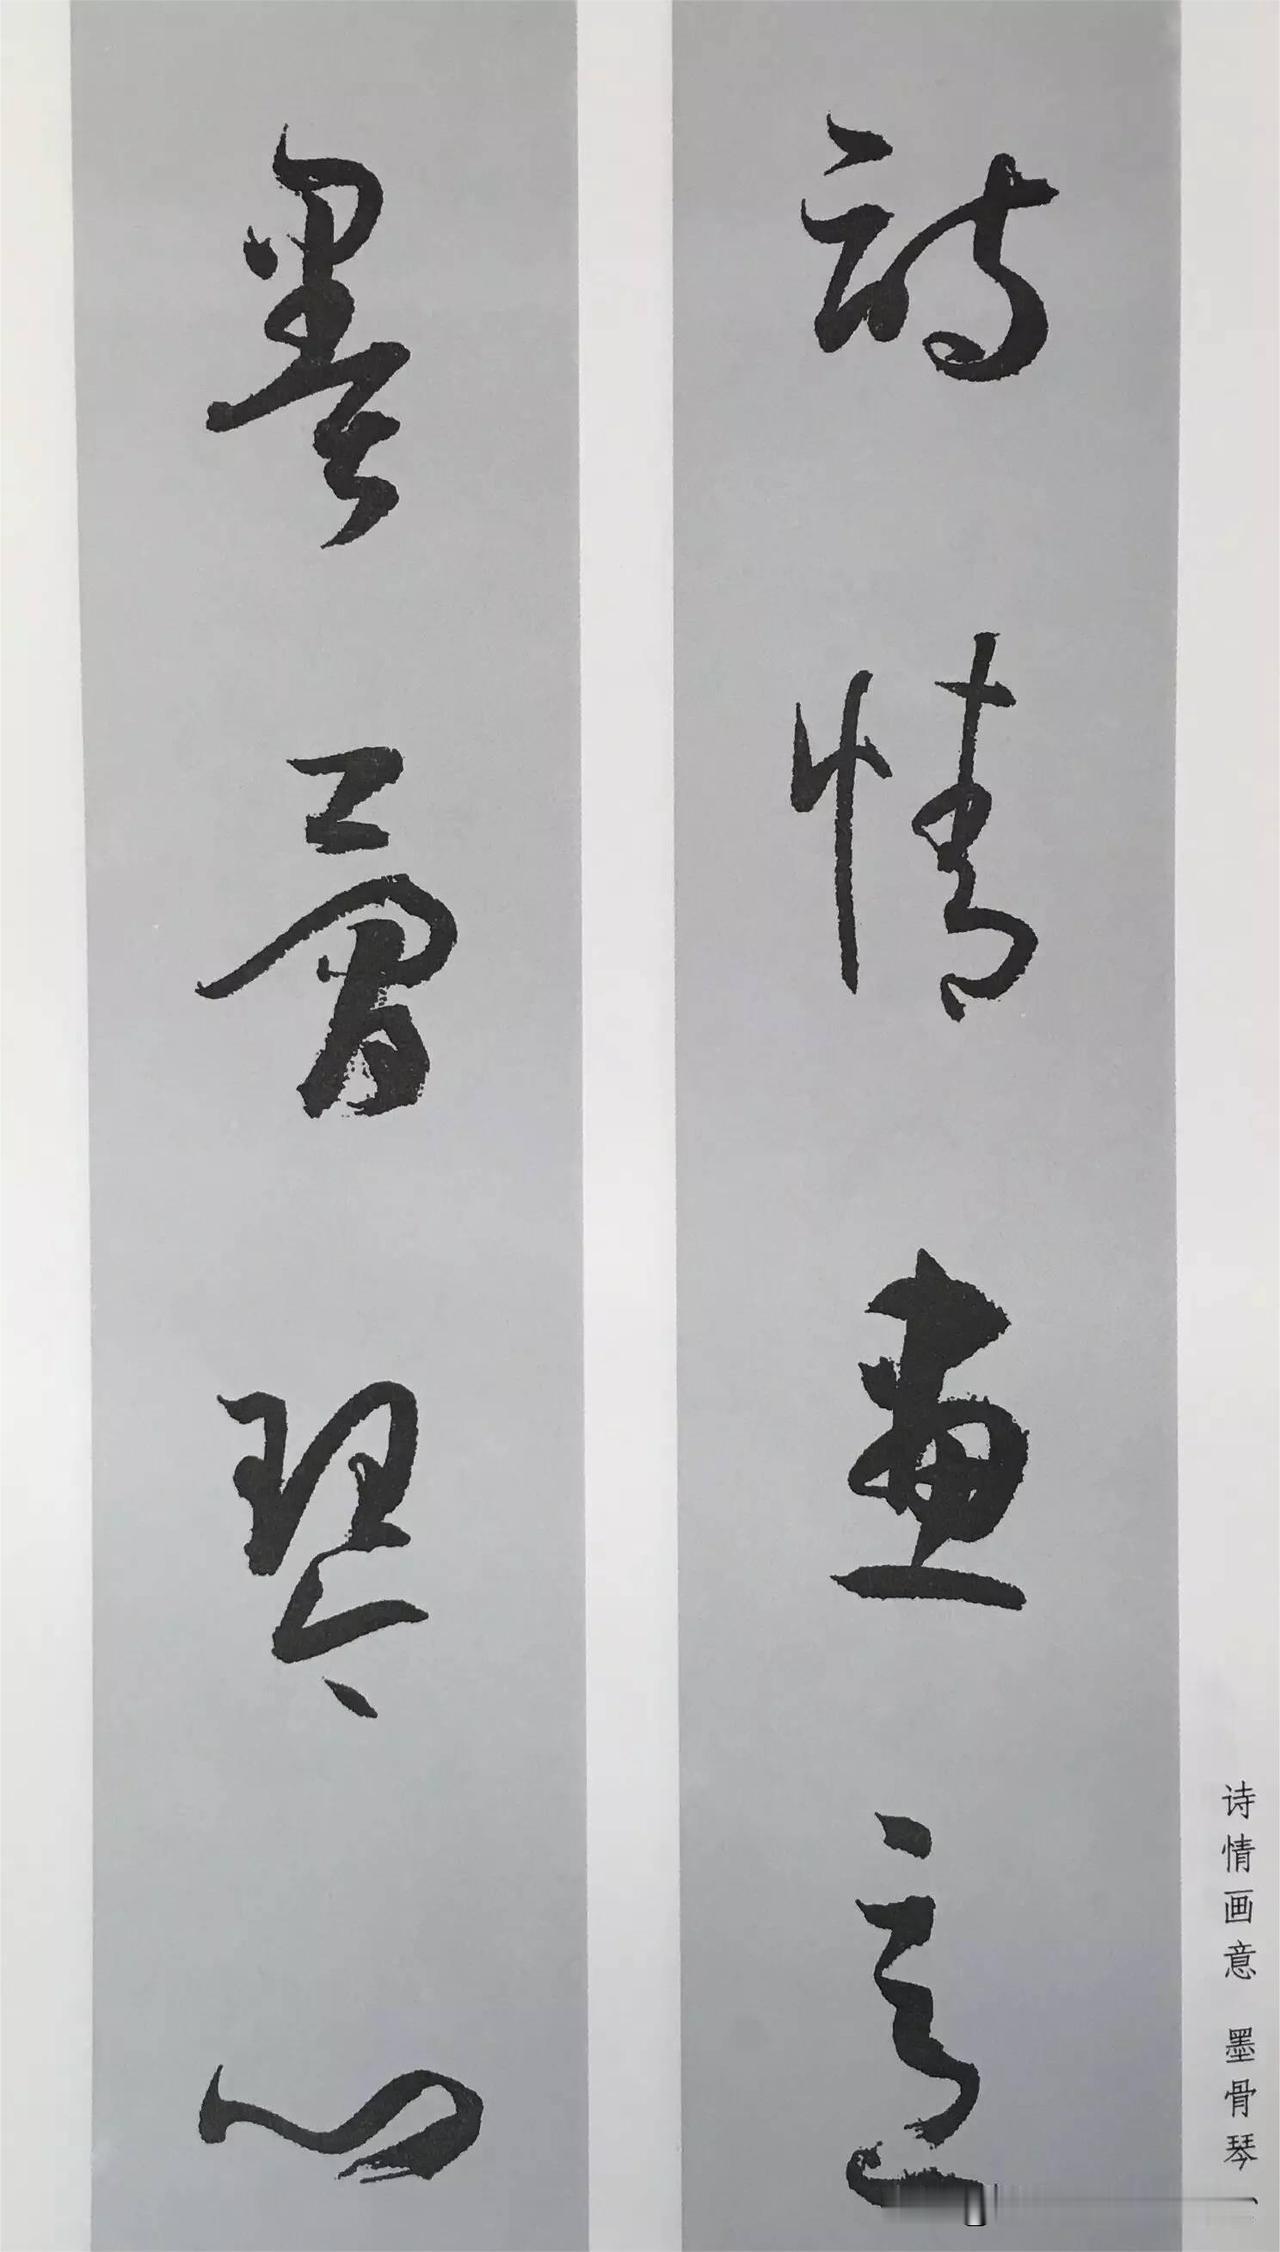 詩情畫意
墨骨琴心
诗情画意 墨骨琴